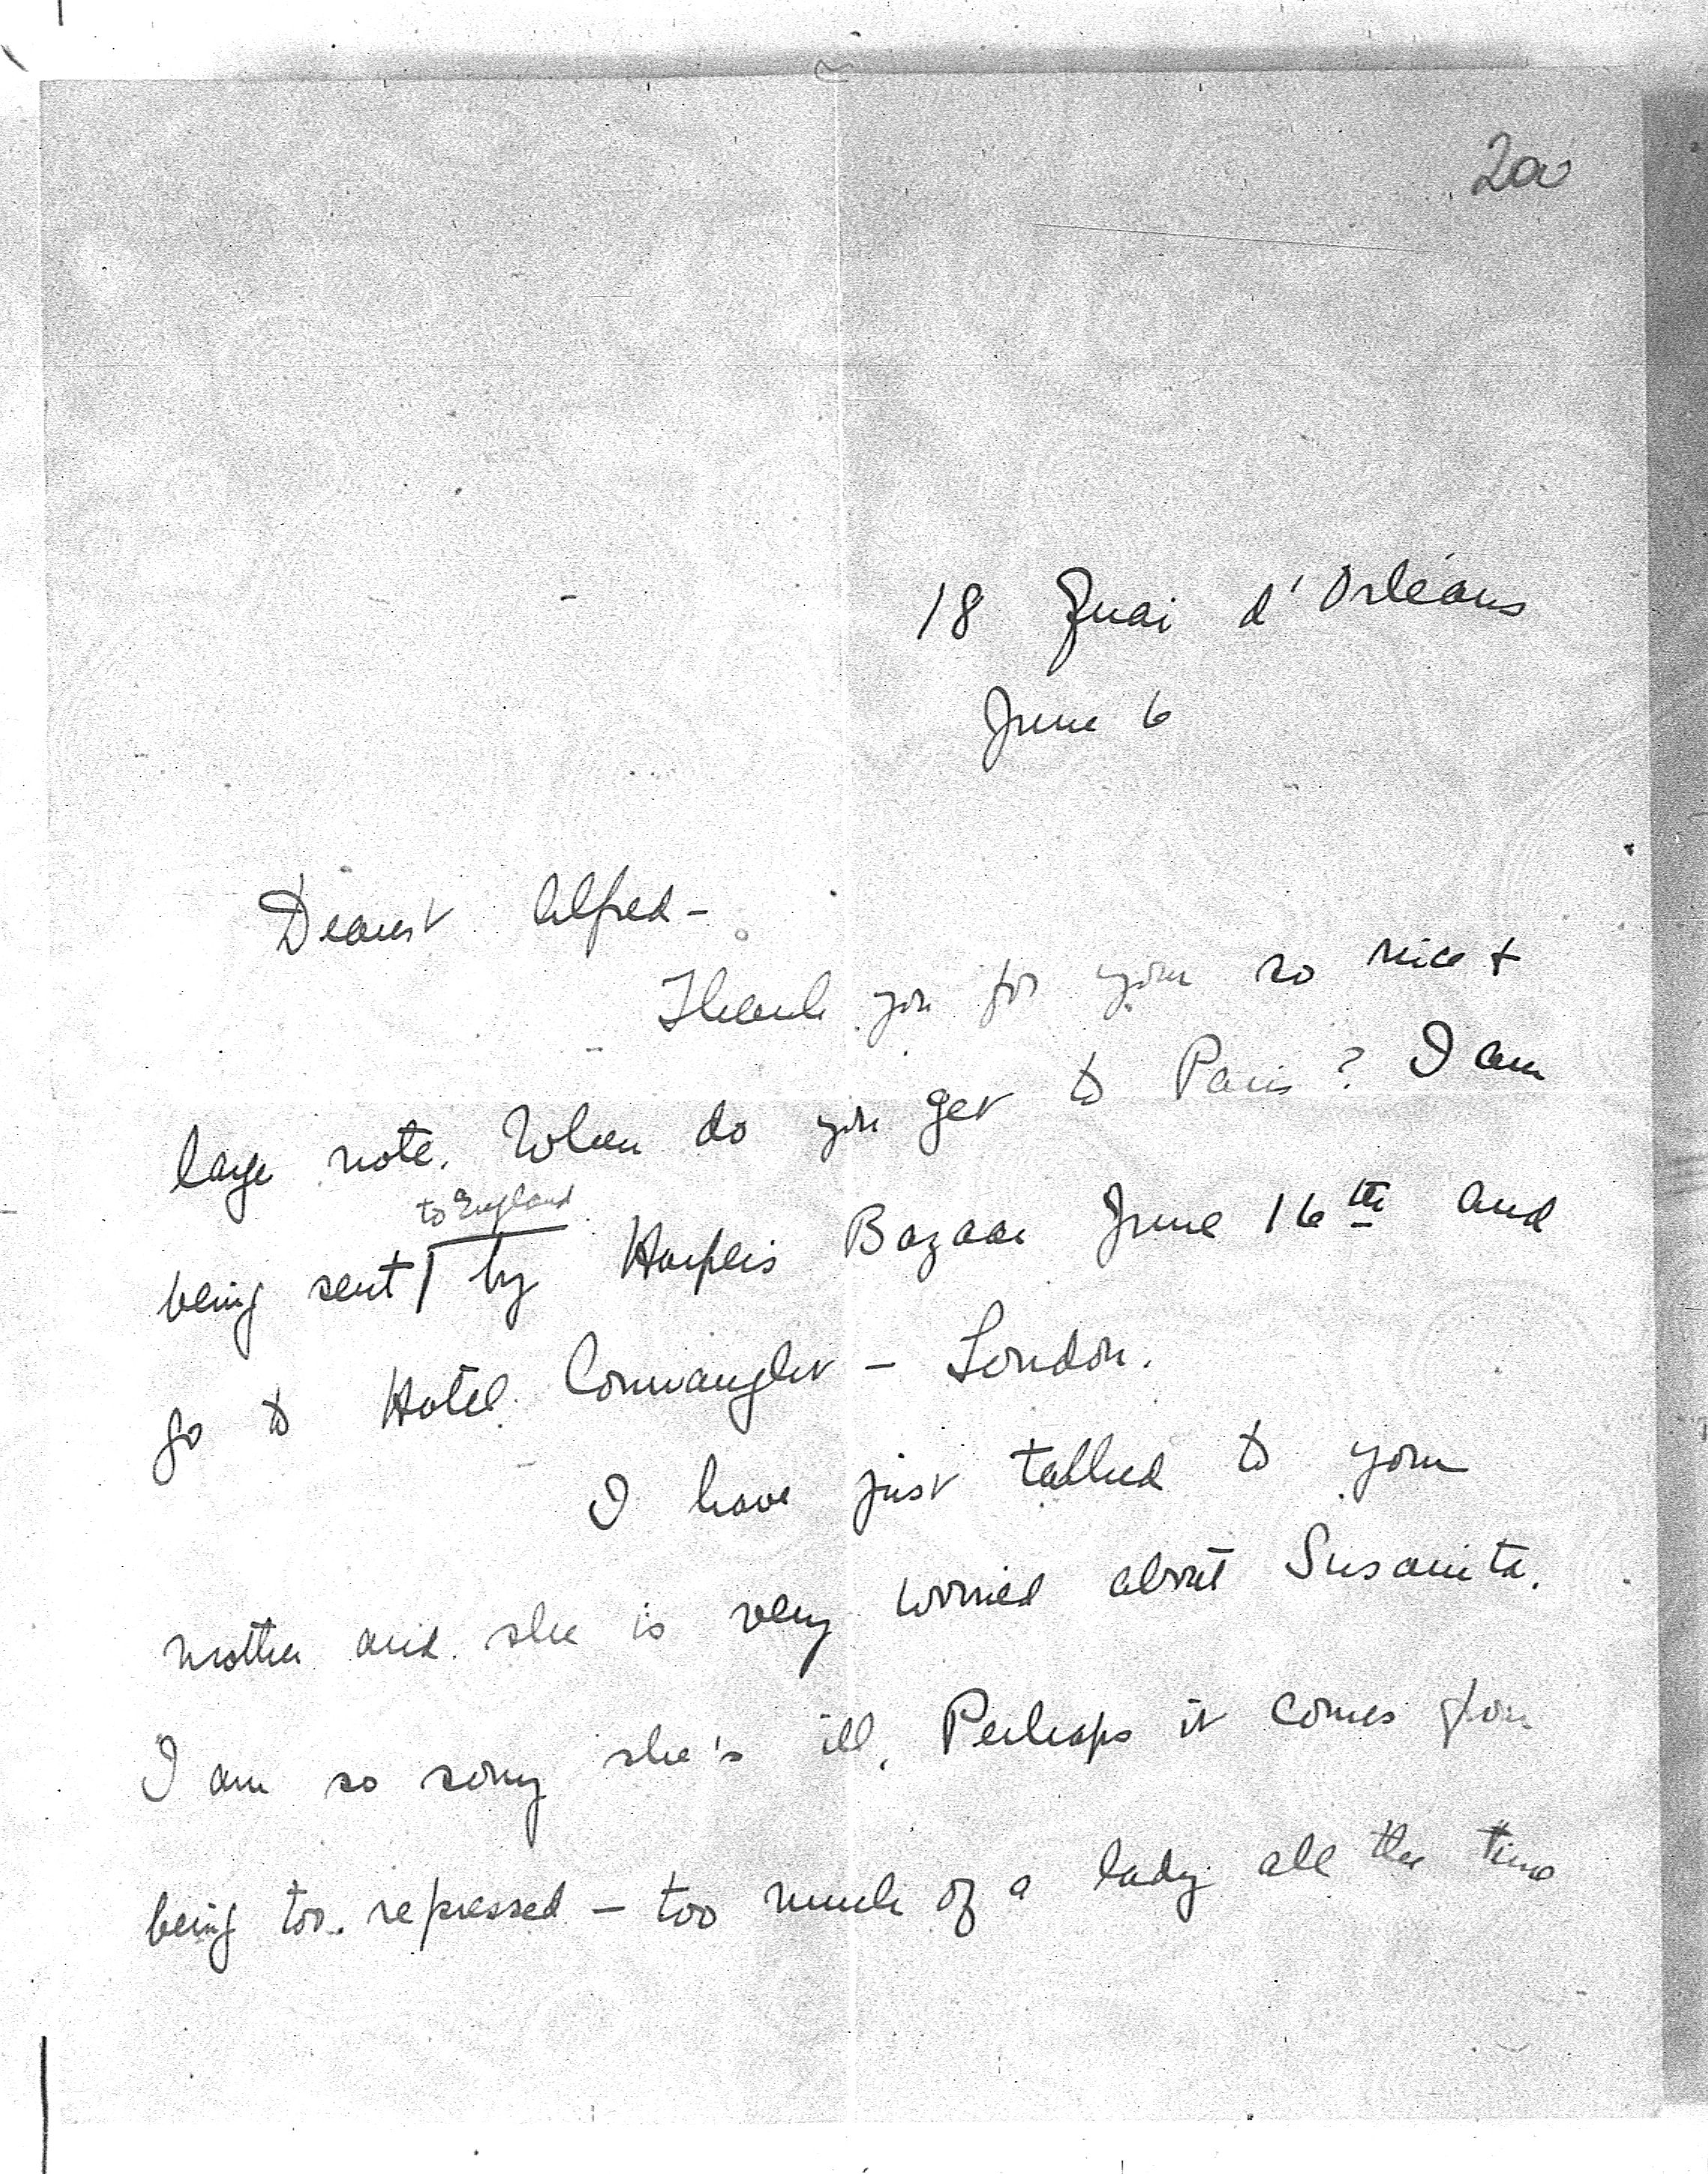 2a
18 Quai d'Orléans
June 6
Dearest Alfred -
Thank you for your so nice +
large note. When do you get to Paris? I am
to England
being sent by Harpers Bazaar June 16th and
go to Hotel Connaught - London.
I have just talked to your
mother and she is very worried about Susanita.
I am so sorry she's ill. Perhaps it comes from
being too repressed - too much of a lady all the time